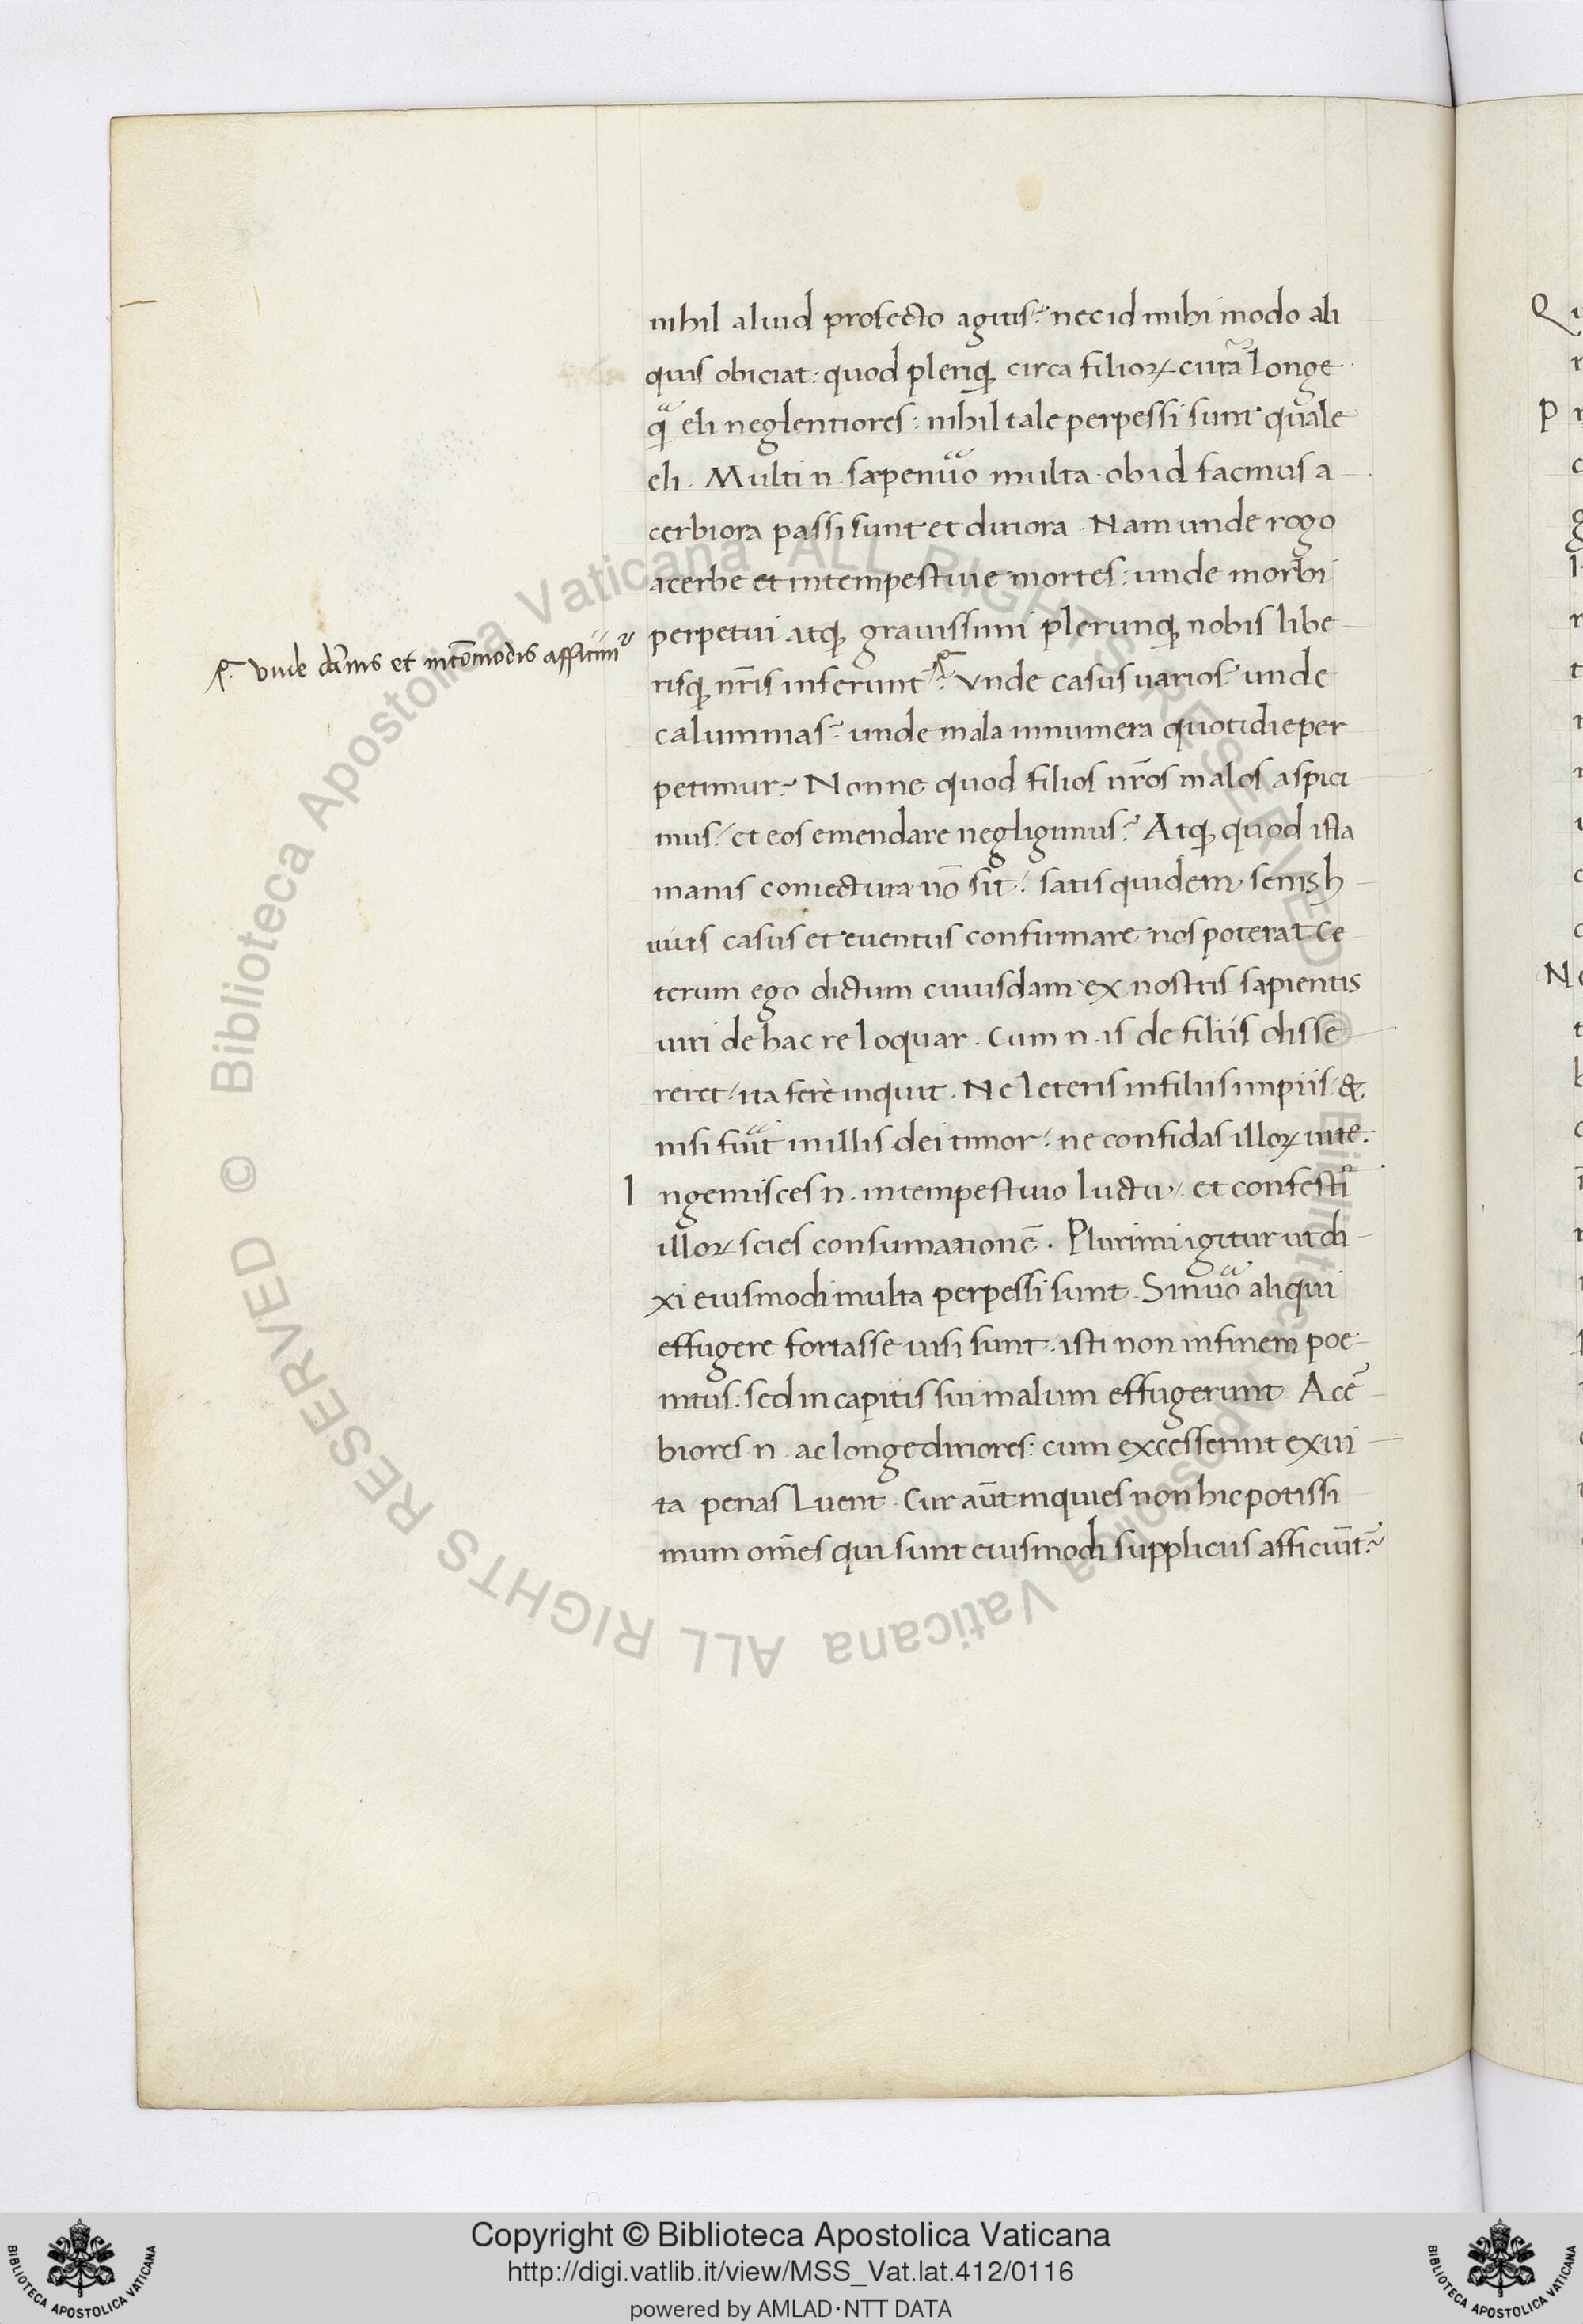 nihil aliud profecto agitis? nec id mihi modo ali
quis obiciat: quod pleriq; circa filioꝝ curã longe
q̃ eli neglentiores: nihil tale perpessi sunt quale
eli. Multi n. sæpenũo multa ob id facinus a
cerbiora passi sunt et diriora. Nam unde rogo
acerbe et intempestiue mortes: unde morbi
perpetui atq; grauissimi plerunq; nobis libe
risq; nr̃is inferunt̃? Vnde casus uarios? unde
calumnias? unde mala innumera quotidie per
petimur? Nonne quod filios nr̃os malos aspici
mus? et eos emendare negligimus? Atq; quod ista
manis coniectura nõ sit: satis quidem senis h
uius casus et euentus confirmare nos poterat Ce
terum ego dictum cuiusdam ex nostris sapientis
uiri de hac re loquar. Cum n. is de filiis disse
reret: ita ferè inquit. Ne leteris in filiis impiis: &
nisi fũit in illis dei timor: ne confidas illoꝝ uite.
Ingemisces n. intempestiuo luctu: et confestĩ
illoꝝ scies consumationẽ. Plurimi igitur ut di
xi eiusmodi multa perpessi sunt. Sin ũo aliqui
effugere fortasse uisi sunt: isti non in finem poe
nitus: sed in capitis sui malum effugerunt Acẽ
biores n. ac longe diriores: cum excesserint ex ui
ta penas luent. Cur aũt inquies non hic potissi
mum om̃es qui sunt eiusmodi suppliciis afficiũt̃?
Vnde dãnis et incõmodis afficim̃
Copyright © Biblioteca Apostolica Vaticana
http://digi.vatlib.it/view/MSS_Vat.lat.412/0116
powered by AMLAD·NTT DATA
BIBLIOTECA APOSTOLICA VATICANA
BIBLIOTECA APOSTOLICA VATICANA
© Biblioteca Apostolica Vaticana ALL RIGHTS RESERVED
© Biblioteca Apostolica Vaticana ALL RIGHTS RESERVED